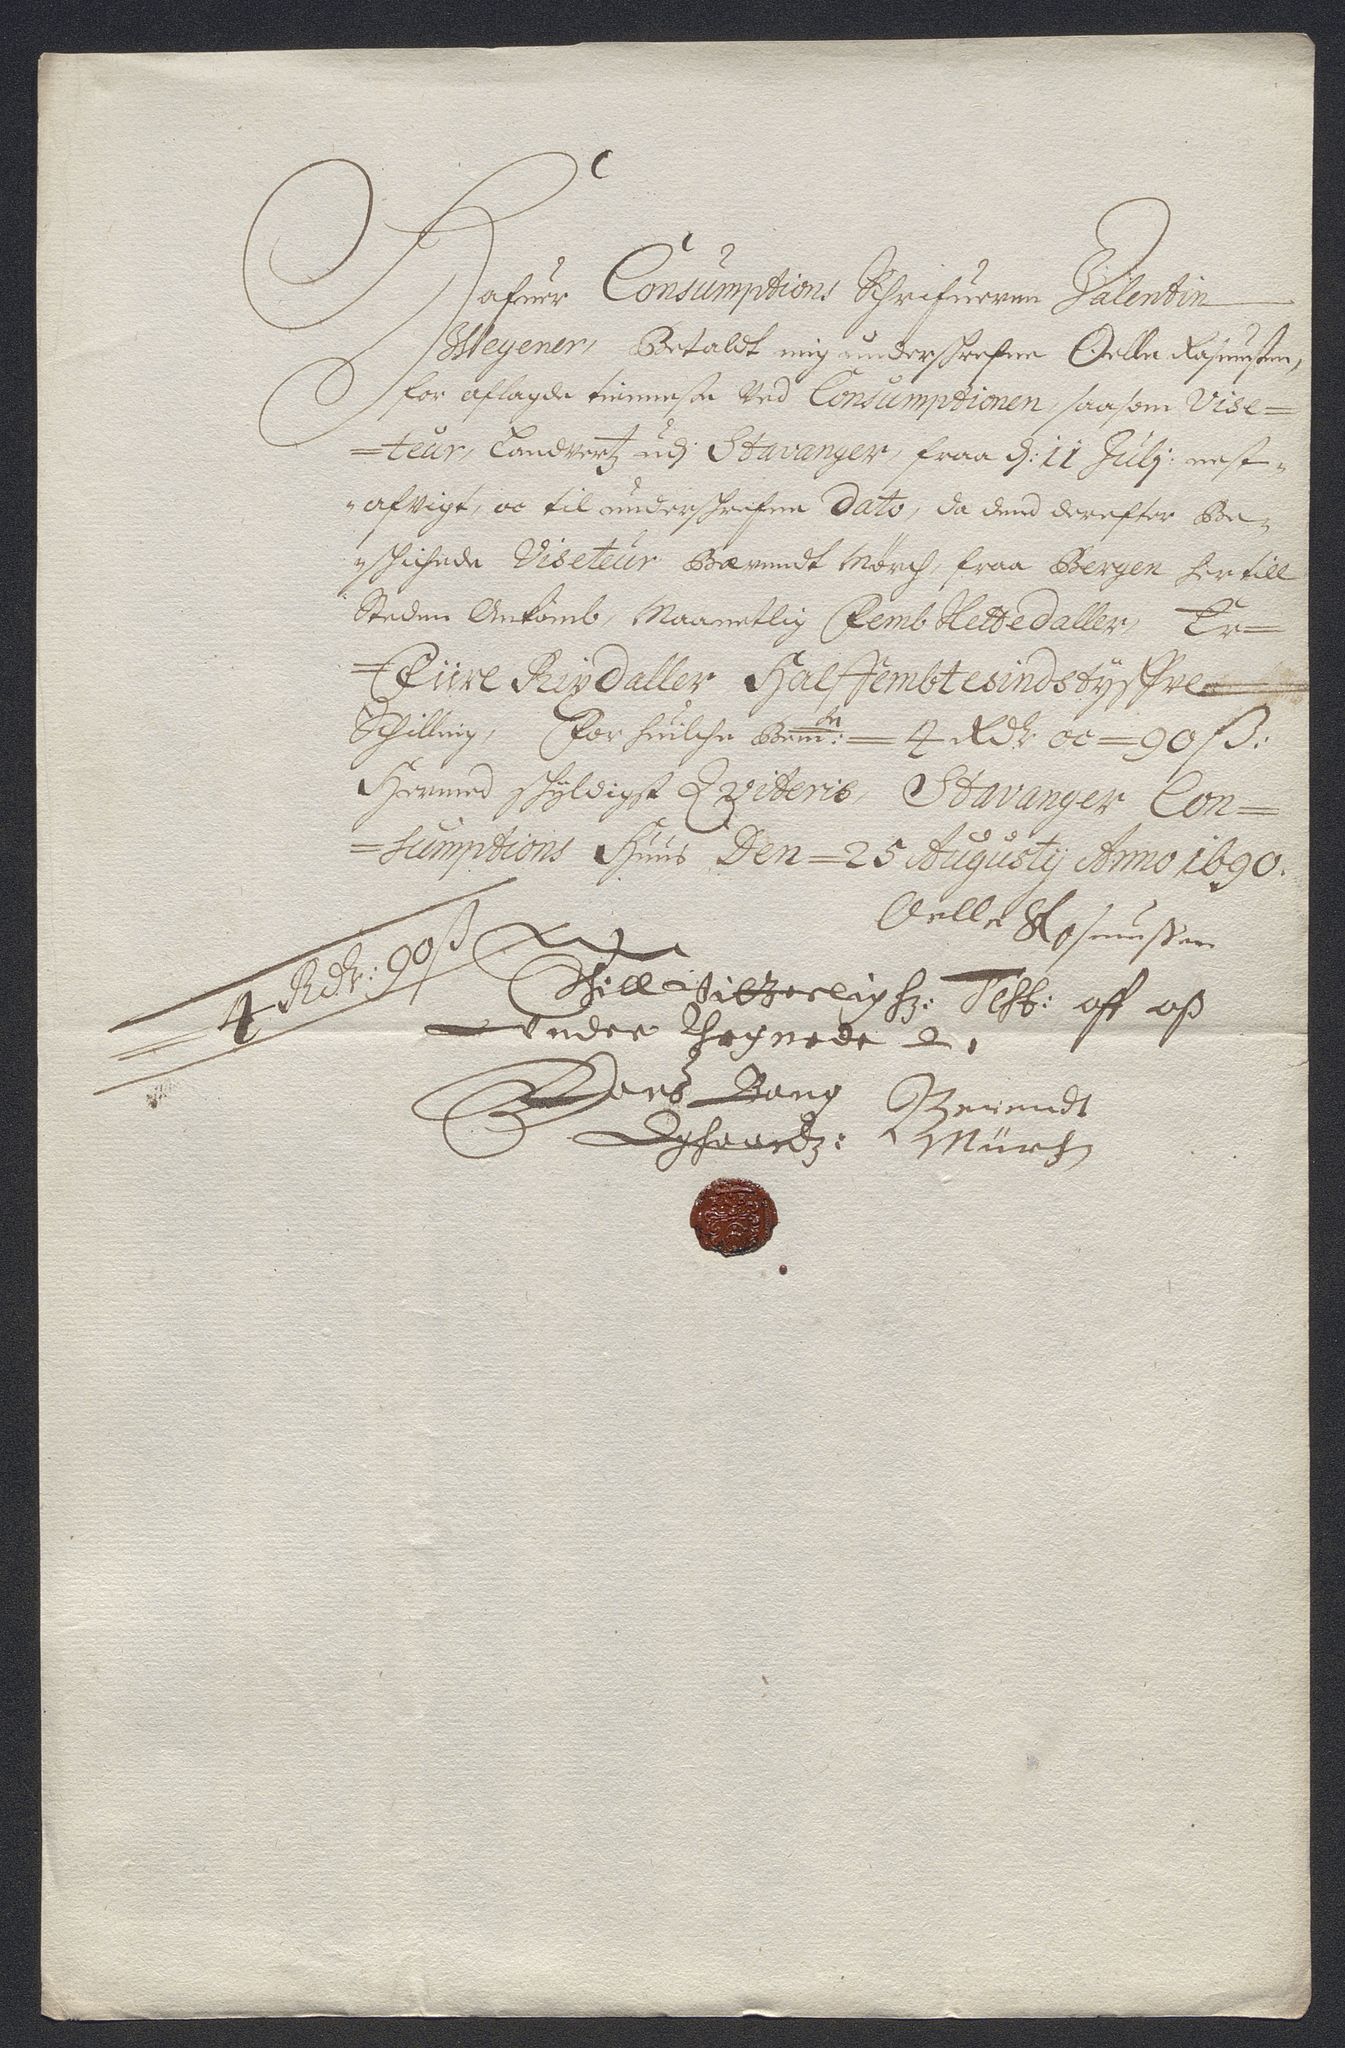 Hafuer Consumptions Schrifueren Valentin
Weyener, Betaldt mig underschrefne Oelle Rasmussen,
for aflagde tienneste Ved Consumptionen, saasom Vise=
=teur, Landvertz udj Stavanger, fraa d: 11 Julij: nest=
=afvigt, oc til underschrefne Dato, da dend derefter Be=
=schichede Viseteur Bærendt Mörch, fraa Bergen her till
Steden Ankomb, Maanetlig Femb Slettedaller, Er=
=Fiire Rixdaller Halffembtesindstyffve
Schilling, For huilche Bemte: = 4 Rdr oc = 90 ß:
Hermed schyldigst Qviteris, Stavanger Con=
=sumptions Huus Den = 25 Augustij Anno 1690.
Oelle Rasmussen
4 Rdr: 90 ß
Till Vitterlighz: Test: aff oß
Under Thegnede
Lars Bang Berendt
Mürch